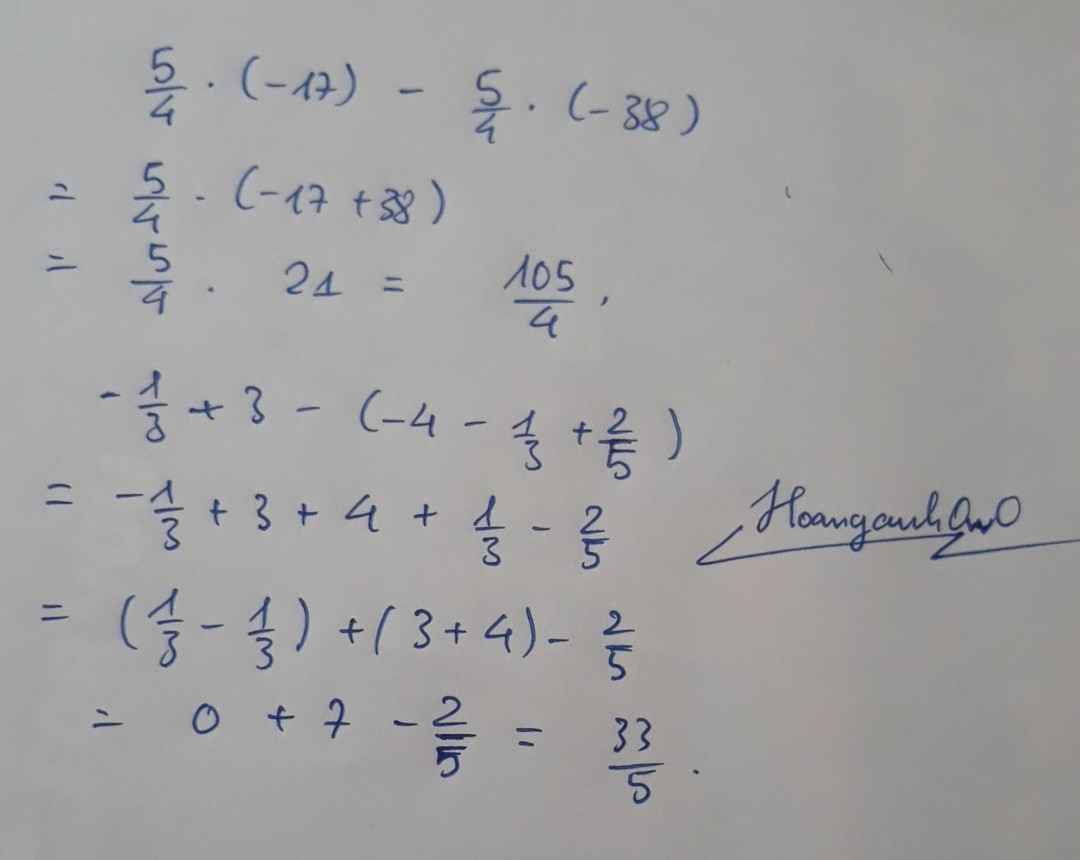 5/4 . (-17) - 5/4 . (-38)
= 5/4 . (-17 + 38)
= 5/4 . 21 = 105/4 .
-1/3 + 3 - (-4 - 1/3 + 2/5)
= -1/3 + 3 + 4 + 1/3 - 2/5
= (1/3 - 1/3) + (3 + 4) - 2/5
= 0 + 7 - 2/5 = 33/5 .